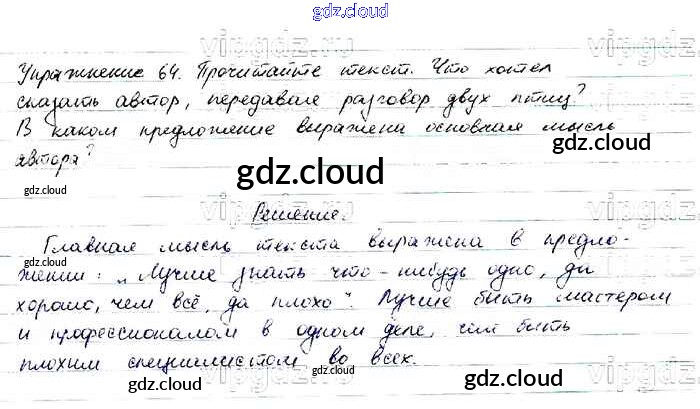 gdz.cloud
vipgdz.ru
Упражнение 64. Прочитайте текст. Что хотел
сказать автор, передавая разговор двух птиц?
gdz.cloud
В каком предложение выражена основная мысль
gdz.cloud
автора?
gdz.cloud
gdz.cloud
Решение.
vipgdz.ru
gdz.cloud
Главная мысль текста выражена в предло-
gdz.cloud
жении: „Лучше знать что-нибудь одно, да
хорошо, чем всё, да плохо". Лучше быть мастером
и профессионалом в одном деле, чем быть
плохим специалистом во всех.
gdz.cloud
gdz.cloud
vipgdz.ru